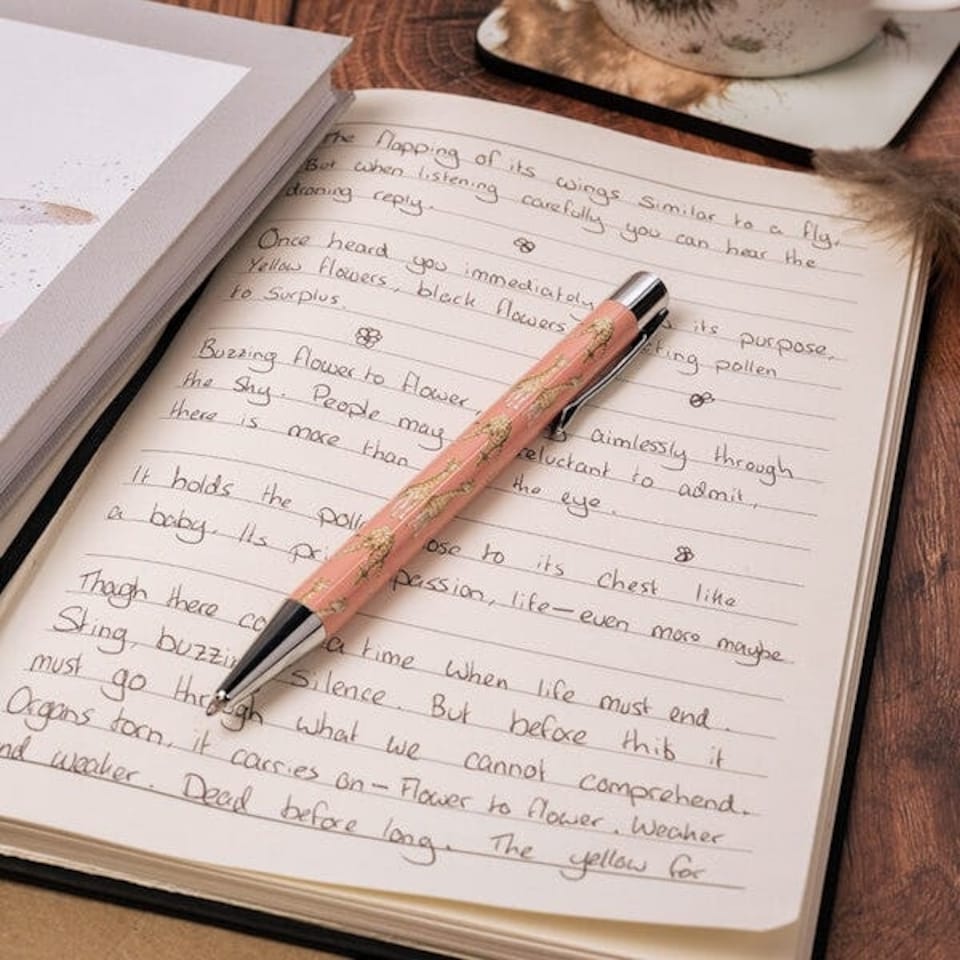 The flapping of its wings similar to a fly.
But when listening carefully you can hear the
droning reply.
Once heard you immediately its purpose,
Yellow flowers, black flowers pollen
to surplus.
Buzzing flower to flower, aimlessly through
the sky. People may reluctant to admit,
there is more than the eye.
It holds the to its chest like
a baby. Its passion, life—even more maybe
Though there a time when life must end.
Sting, buzzing Silence. But before this it
must go through what we cannot comprehend.
Organs torn, it carries on—Flower to flower. Weaker
and weaker. Dead before long. The yellow for